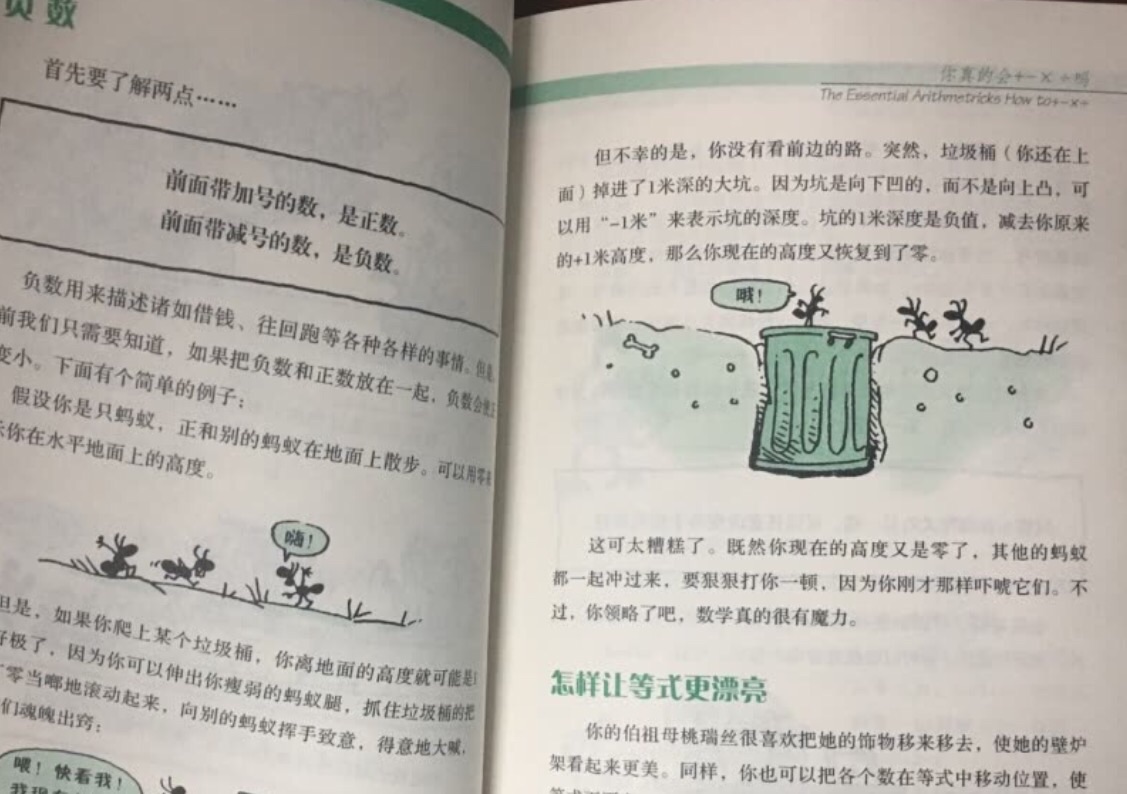 负数
首先要了解两点……
前面带加号的数，是正数。
前面带减号的数，是负数。
负数用来描述诸如借钱、往回跑等各种各样的事情。但是，
前我们只需要知道，如果把负数和正数放在一起，负数会使正
变小。下面有个简单的例子：
假设你是只蚂蚁，正和别的蚂蚁在地面上散步。可以用零来
示你在水平地面上的高度。
嗨！
但是，如果你爬上某个垃圾桶，你离地面的高度就可能是1
好极了，因为你可以伸出你瘦弱的蚂蚁腿，抓住垃圾桶的把
零当啷地滚动起来，向别的蚂蚁挥手致意，得意地大喊，
们魂魄出窍：
喂！快看我！
你真的会+-×÷吗
The Essential Arithmetricks How to+-×÷
但不幸的是，你没有看前边的路。突然，垃圾桶（你还在上
面）掉进了1米深的大坑。因为坑是向下凹的，而不是向上凸，可
以用“-1米”来表示坑的深度。坑的1米深度是负值，减去你原来
的+1米高度，那么你现在的高度又恢复到了零。
哦！
这可太糟糕了。既然你现在的高度又是零了，其他的蚂蚁
都一起冲过来，要狠狠打你一顿，因为你刚才那样吓唬它们。不
过，你领略了吧，数学真的很有魔力。
怎样让等式更漂亮
你的伯祖母桃瑞丝很喜欢把她的饰物移来移去，使她的壁炉
架看起来更美。同样，你也可以把各个数在等式中移动位置，使